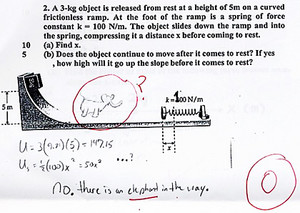 2. A 3-kg object is released from rest at a height of 5m on a curved
frictionless ramp. At the foot of the ramp is a spring of force
constant k = 100 N/m. The object slides down the ramp and into
the spring, compressing it a distance x before coming to rest.
10 (a) Find x.
5 (b) Does the object continue to move after it comes to rest? If yes
, how high will it go up the slope before it comes to rest?
?
k=100 N/m
5 m
x
U = 3(9.81)(5) = 147.15
Us = ½(100)x² = 50x² ...?
no. there is an elephant in the way.
0